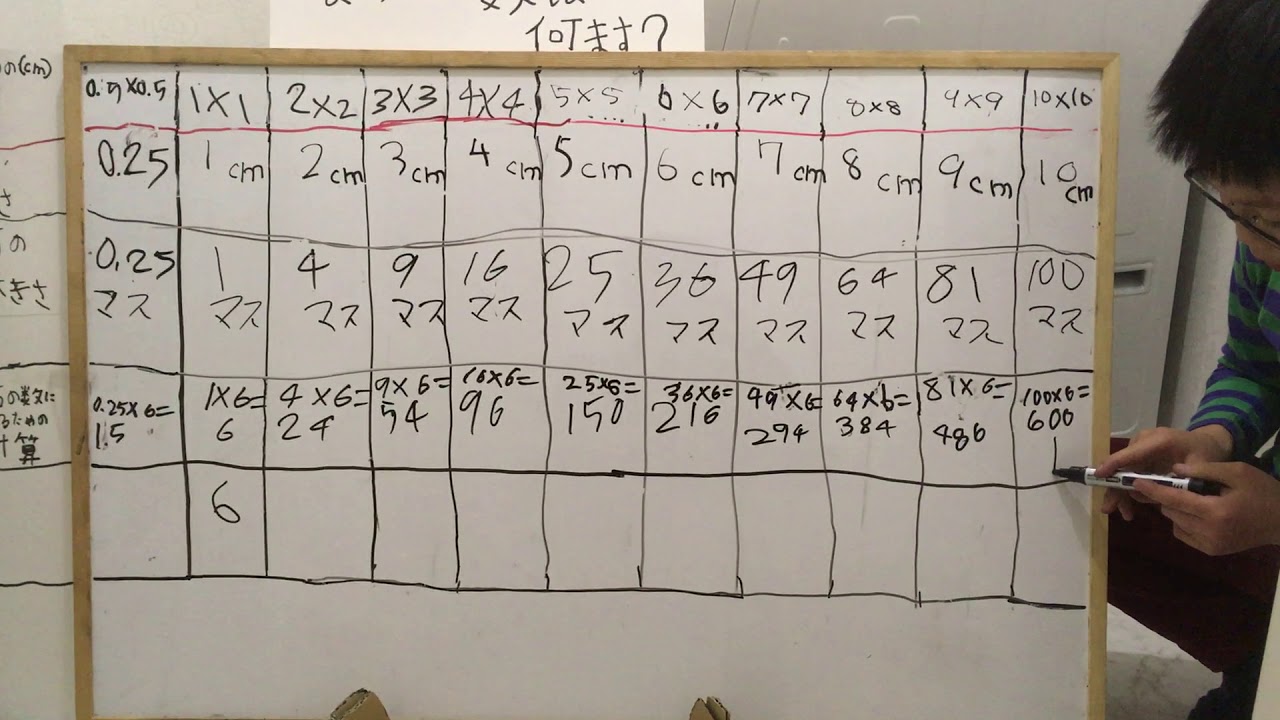 何ます?
の(cm)
0.5×0.5 1×1 2×2 3×3 4×4 5×5 6×6 7×7 8×8 9×9 10×10
0.25 1cm 2cm 3cm 4cm 5cm 6cm 7cm 8cm 9cm 10cm
さ
の
きさ
0.25 1 4 9 16 25 36 49 64 81 100
マス マス マス マス マス マス マス マス マス マス マス
の数文に
るための
計算
0.25×6= 1×6= 4×6= 9×6= 16×6= 25×6= 36×6= 49×6= 64×6= 81×6= 100×6=
1.5 6 24 54 96 150 216 294 384 486 600
6